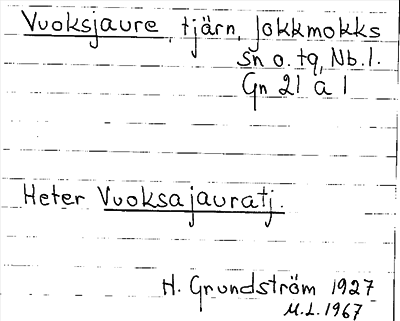 Vuoksjaure, tjärn, Jokkmokks
sn o. tg, Nb. l.
Gn 21 a 1
Heter Vuoksajauratj.
H. Grundström 1927
M.L. 1967